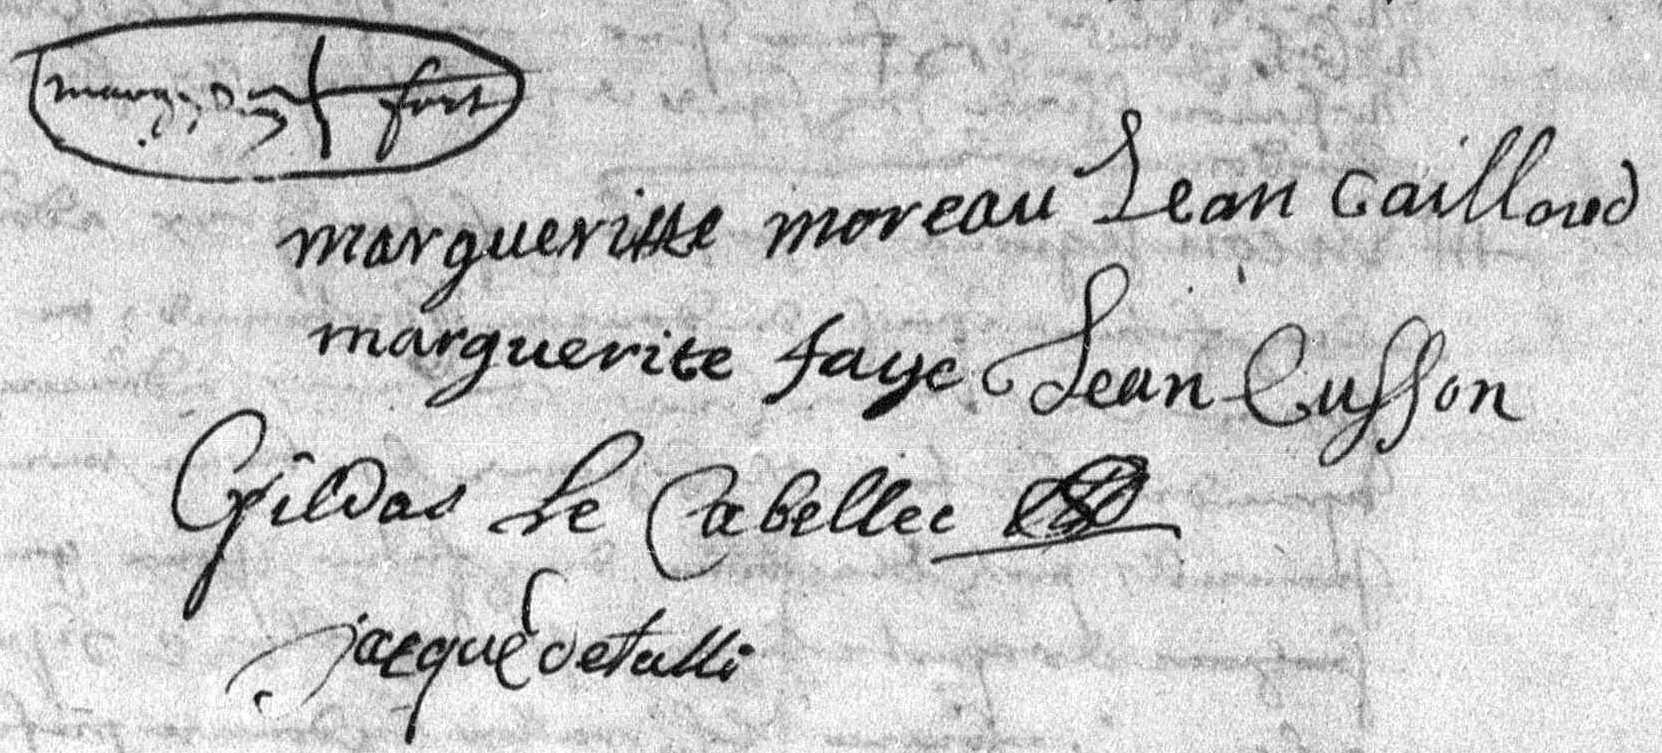 marque de fort
margueritte moreau Jean Cailloud
marguerite faye Jean Cusson
Gildas Le Cabellec
jacque detalli